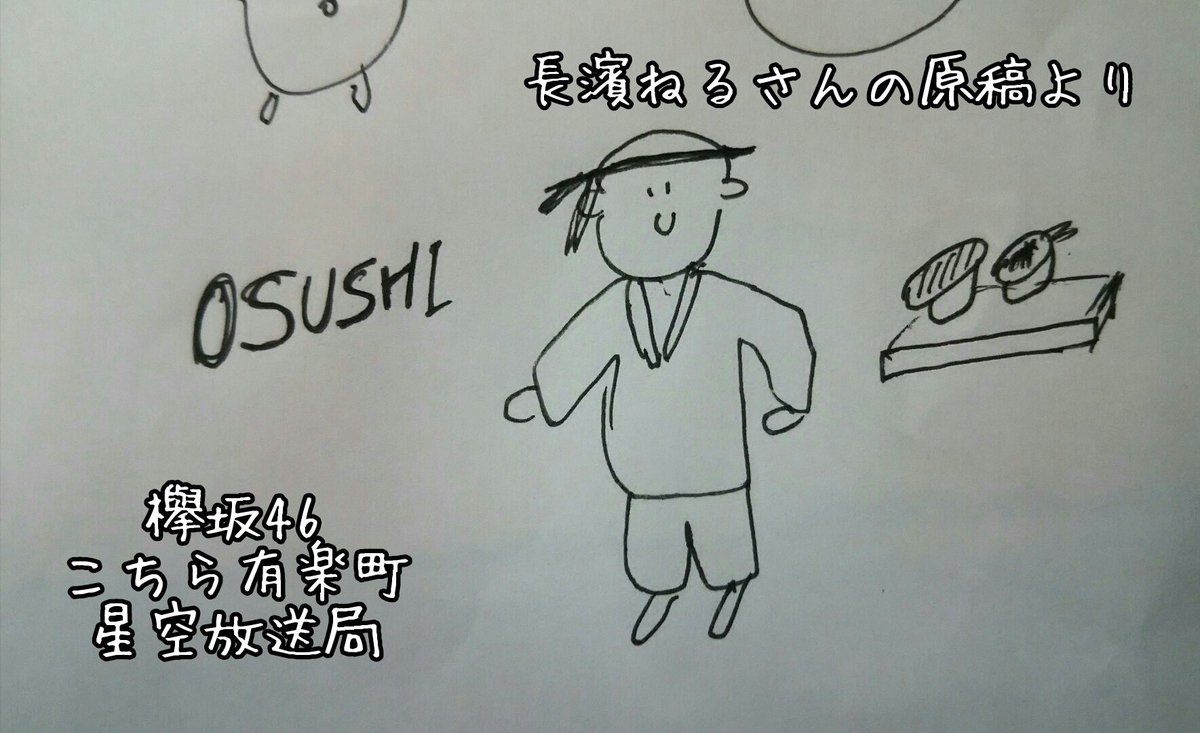 長濱ねるさんの原稿より
OSUSHI
欅坂46
こちら有楽町
星空放送局